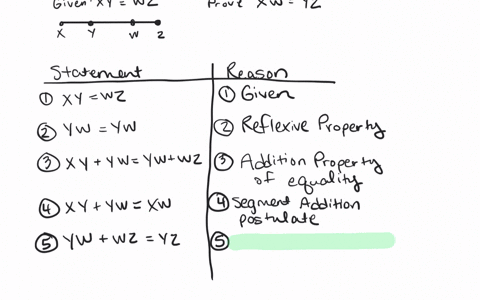 Given: XY = WZ Prove XW = YZ
X Y W Z
Statement Reason
① XY = WZ ① Given
② YW = YW ② Reflexive Property
③ XY + YW = YW + WZ ③ Addition Property
of equality
④ XY + YW = XW ④ Segment Addition
postulate
⑤ YW + WZ = YZ ⑤